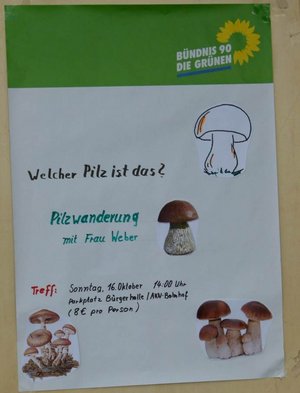 BÜNDNIS 90
DIE GRÜNEN
Welcher Pilz ist das?
Pilzwanderung
mit Frau Weber
Treff: Sonntag, 16. Oktober 14:00 Uhr
Parkplatz Bürgerhalle / AKN-Bahnhof
(8 € pro Person)